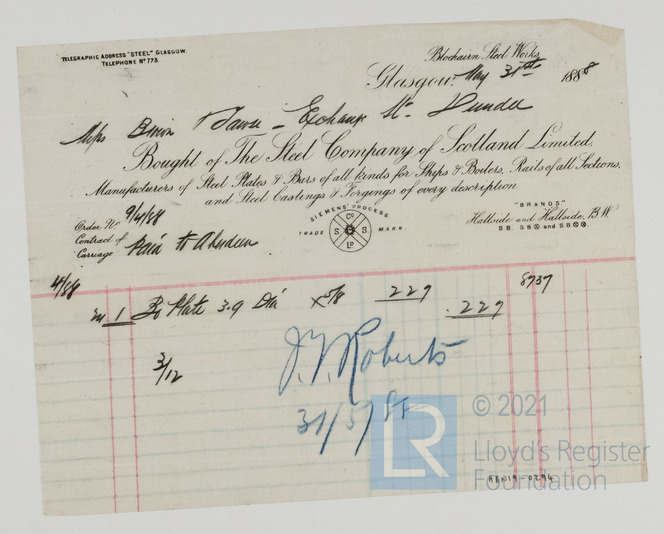 TELEGRAPHIC ADDRESS "STEEL" GLASGOW.
TELEPHONE Nº 773.
Blochairn Steel Works,
Glasgow, May 31st 1888
Messrs - Exchange St. Dundee
Bought of The Steel Company of Scotland Limited.
Manufacturers of Steel Plates & Bars of all kinds for Ships & Boilers, Rails of all Sections,
and Steel Castings & Forgings of every description.
Order No 9/4/88
Contract of
Carriage Paid to Aberdeen
SIEMENS' PROCESS
TRADE MARK.
Co
S S
Ld
"BRANDS"
Hallside and Hallside, B.W.
SB. SB⊗ and SB⊗⊗
4/88
1 Bo Plate 3.9 Dia x 5/8 227 227 8737
3/12
J.T. Roberts
31/5/88
© 2021
LR
Lloyd's Register
Foundation